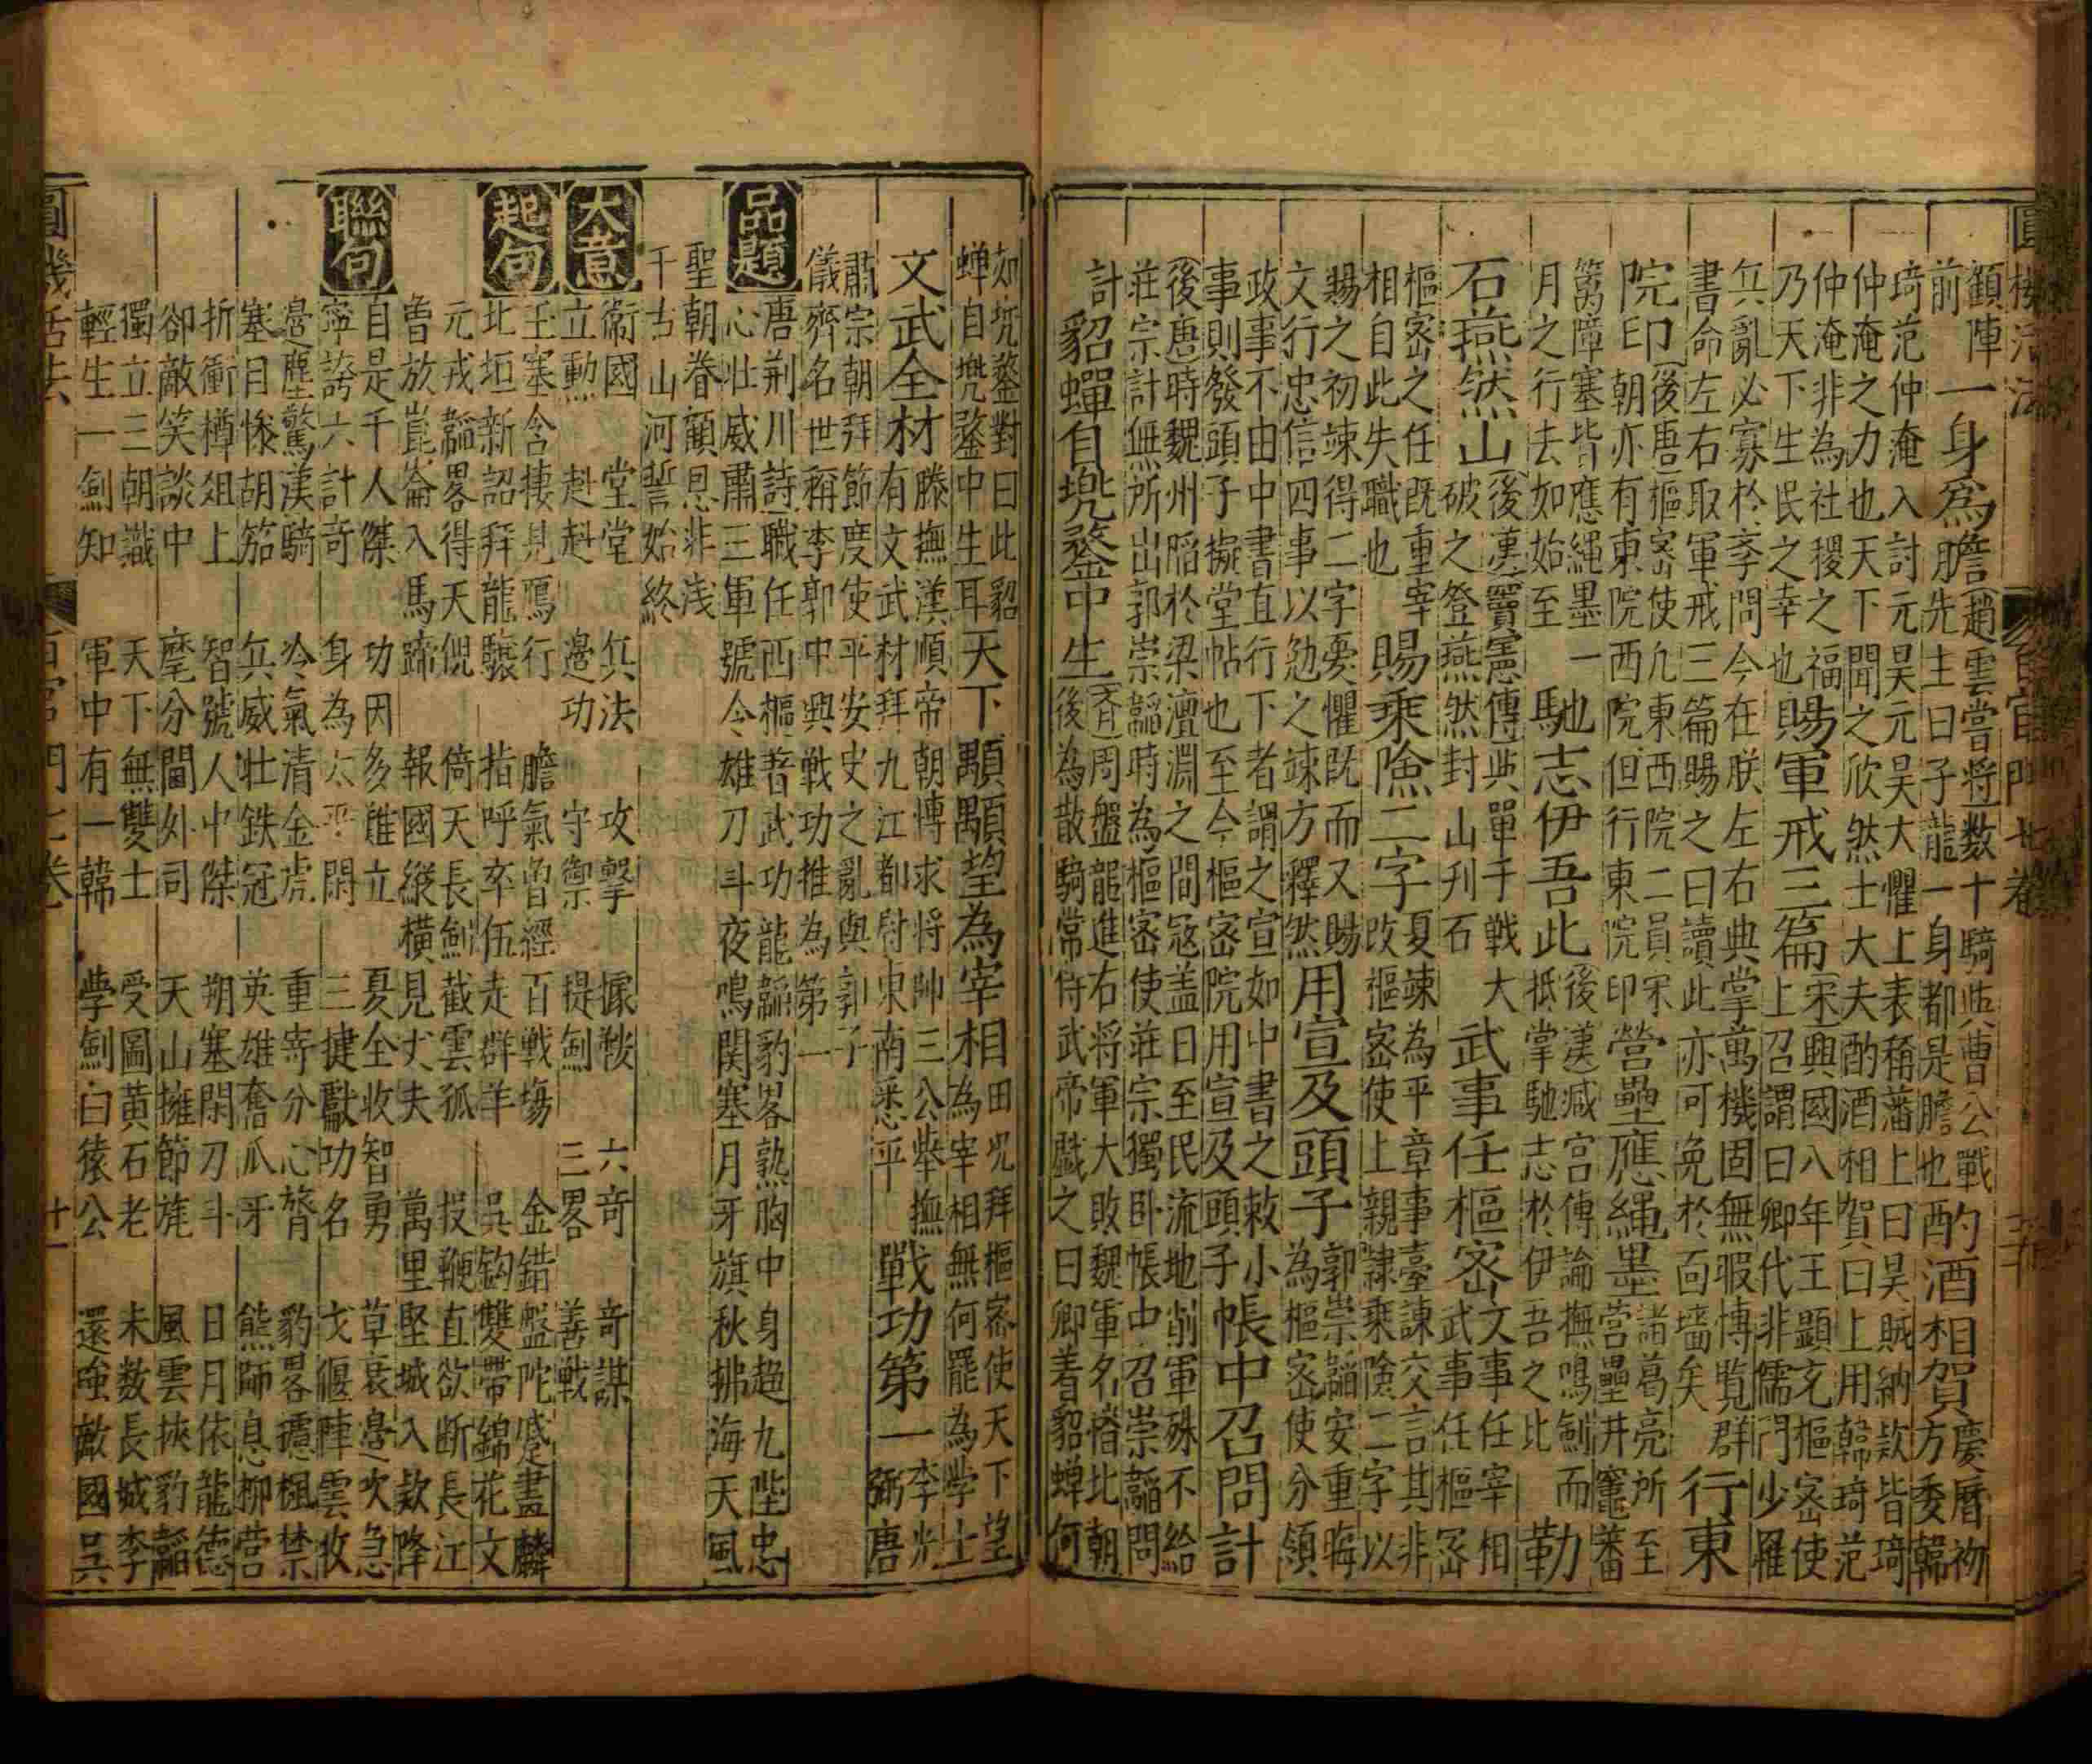 圓機活法 百官門 卷
顛陣
前
一身為膽
趙雲嘗將数十騎與曹公戰
先主曰子龍一身都是膽也
酌酒相賀
慶曆初
方委韓
琦范仲淹入討元昊元昊大懼上表稱藩上曰昊賊納欵皆琦
仲淹之力也天下聞之欣然士大夫酌酒相賀曰上用韓琦范
仲淹非為社稷之福
乃天下生民之幸也
賜軍戒三篇
宋興國八年王顯充樞宻使
上召謂曰卿代非儒門少罹
兵亂必寡於斈問今在朕左右典掌萬機固無暇博覧群
書命左右取軍戒三篇賜之曰讀此亦可免於面墻矣
行東
院印
後唐樞宻使九東西院二員宋
朝亦有東院西院但行東院印
營壘應繩墨
諸葛亮所至
營壘井竈蕃
籬障塞皆應繩墨一
月之行去如始至
馳志伊吾此
後漢臧宫傳論撫鳴劍而
抵掌馳志於伊吾之北
勒
石燕然山
後漢竇憲傳與單于戰大
破之登燕然封山刋石
武事任樞宻
文事任宰相
武事任樞宻
樞宻之任既重宰
相自此失職也
賜乗險二字
夏竦為平章事臺諫交言其非
改樞宻使上親隷乗險二字以
賜之初竦得二字畏懼既而又賜
文行忠信四事以勉之竦方釋然
用宣及頭子
郭崇韜安重誨
為樞宻使分領
政事不由中書直行下者謂之宣如中書之敕小
事則發頭子擬堂帖也至今樞宻院用宣及頭子
帳中召問計
後唐時魏州䧟於梁澶淵之間冦盖日至民流地削軍殊不給
莊宗計無所出郭崇韜時為樞宻使莊宗獨卧帳中召崇韜問
計
貂蟬自兠鍪中生
齊周盤龍進右将軍大敗魏軍名播北朝
後為散騎常侍武帝戲之曰卿着貂蟬何
如兠鍪對曰此貂
蟬自兠鍪中生耳
天下顒顒望為宰相
田况拜樞宻使天下望
為宰相無何罷為学士
文武全材
滕撫漢順帝朝博求将帥三公舉撫
有文武材拜九江都尉東南悉平
戰功第一
李光
弼唐
肅宗朝拜節度使平安史之亂與郭子
儀齊名世稱李郭中興戰功推為第一
品題
唐荆川詩職任西樞著武功龍韜豹畧熟胸中身趨九陛忠
心壮威肅三軍號令雄刀斗夜鳴関塞月牙旗秋拂海天風
聖朝眷顧恩非浅
千古山河誓始終
大意
衞國 堂堂 兵法 攻擊 據鞍 六竒 竒謀
立勲 赳赳 邉功 守禦 提劍 三畧 善戰
起句
玉塞含棲見鴈行 膽氣曾經百戰塲 金錯盤陀盛畫麟
北垣新詔拜龍驤 指呼卒伍走群羊 吳鈎雙帶錦花文
元戎韜畧得天俔 倚天長劍截雲孤 投鞭直欲断長江
曾放崑崙入馬蹄 報國縱横見丈夫 萬里堅城入欵降
聯句
自是千人傑 功因多難立 夏全收智勇 草衰邉吹急
寧誇六計竒 身為太平閑 三捷獻功名 戈偃陣雲收
邉塵驚漢騎 冷氣清金虎 重寄分心膂 豹畧攄楓禁
塞目慘胡笳 兵威壮鉄冠 英雄奮爪牙 熊師息柳営
折衝樽俎上 智號人中傑 朔塞閑刀斗 日月依龍徳
卻敵笑談中 麾分閫外司 天山擁節旄 風雲挾豹韜
獨立三朝識 天下無雙士 受圖黄石老 未数長城李
輕生一劍知 軍中有一韓 學劍白猿公 還強敵國吳
圓機活法 百官門七卷 十一